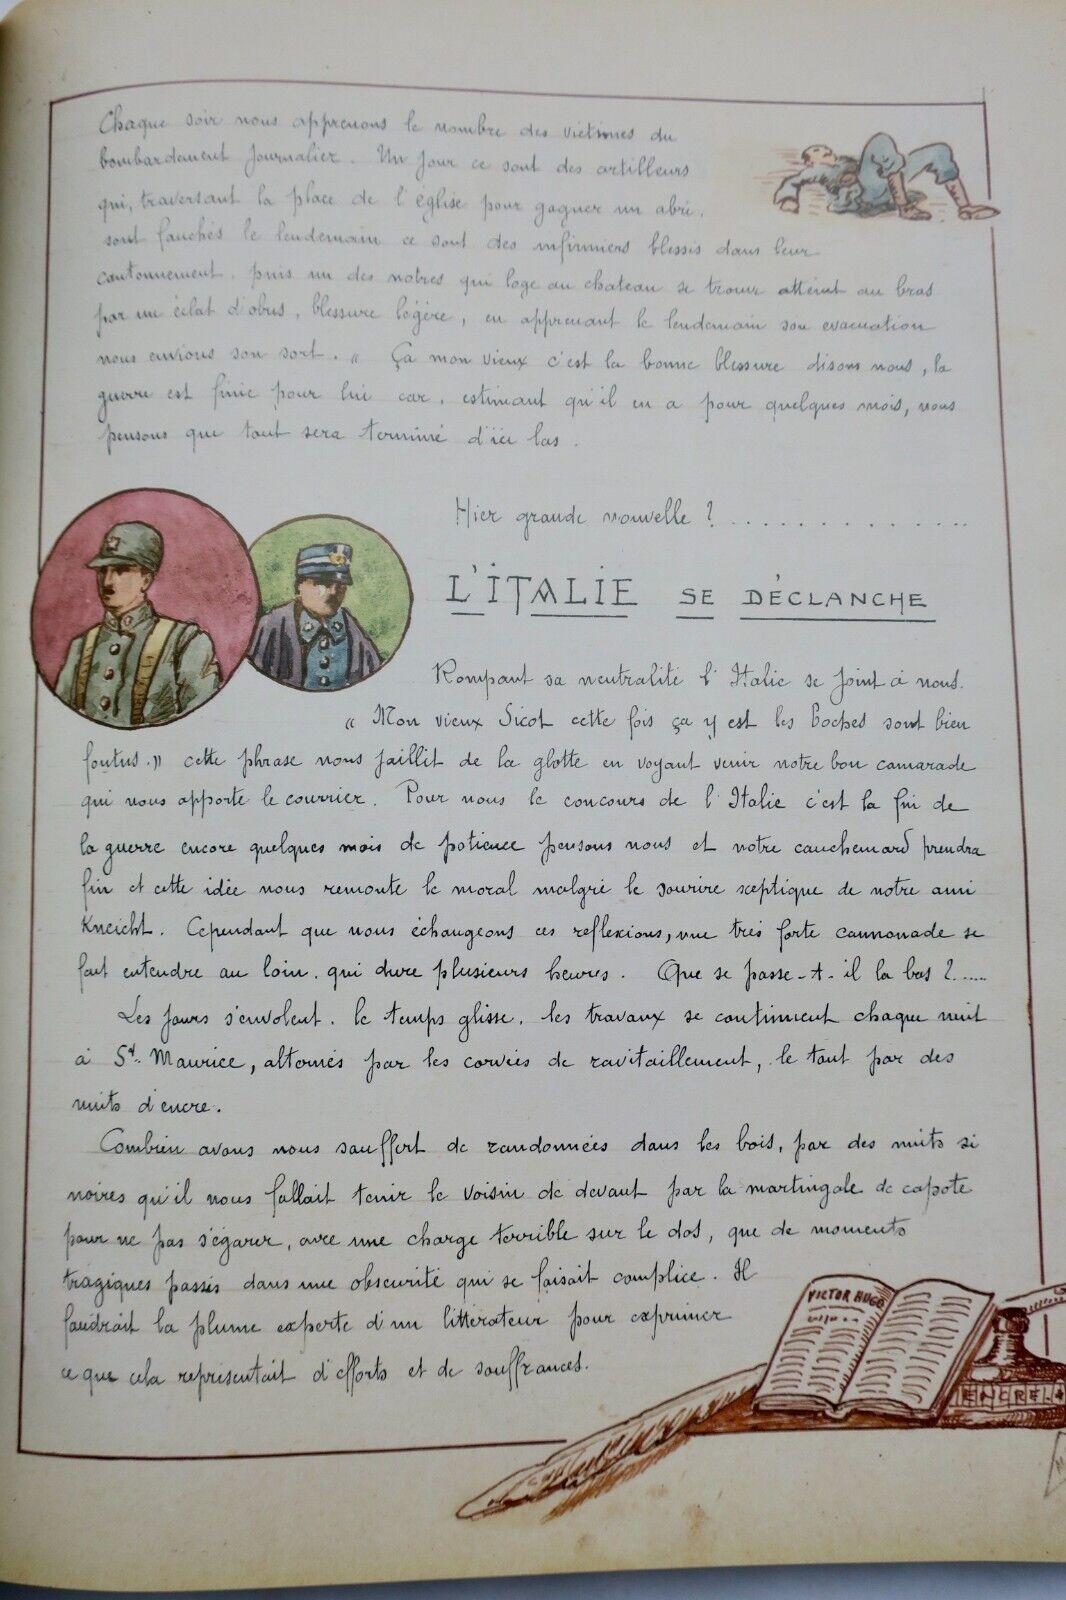 Chaque soir nous apprenons le nombre des victimes du
bombardement journalier. Un jour ce sont des artilleurs
qui, traversant la place de l'église pour gagner un abri,
sont fauchés le lendemain ce sont des infirmiers blessés dans leur
cantonnement, puis un des notres qui loge au chateau se trouve atteint au bras
par un éclat d'obus, blessure légère, en apprenant le lendemain son evacuation
nous envions son sort. " Ça mon vieux c'est la bonne blessure disons nous, la
guerre est finie pour lui car, estimant qu'il en a pour quelques mois, nous
pensons que tout sera terminé d'ici las.
Hier grande nouvelle ? ..............
L'ITALIE SE DÉCLANCHE
Rompant sa neutralité l'Italie se joint à nous.
" Mon vieux Sicot cette fois ça y est les Boches sont bien
foutus." cette phrase nous jaillit de la glotte en voyant venir notre bon camarade
qui nous apporte le courrier. Pour nous le concours de l'Italie c'est la fin de
la guerre encore quelques mois de patience pensons nous et notre cauchemard prendra
fin et cette idée nous remonte le moral malgré le sourire sceptique de notre ami
Kneicht. Cependant que nous échangeons ces reflexions, une très forte cannonade se
fait entendre au loin, qui dure plusieurs heures. Que se passe-t-il la bas ?.....
Les jours s'envolent, le temps glisse, les travaux se continuent chaque nuit
à St. Maurice, alternés par les corvées de ravitaillement, le tout par des
nuits d'encre.
Combien avons nous souffert de randonnées dans les bois, par des nuits si
noires qu'il nous fallait tenir le voisin de devant par la martingale de capote
pour ne pas s'égarer, avec une charge terrible sur le dos, que de moments
tragiques passés dans une obscurité qui se faisait complice. Il
faudrait la plume experte d'un littérateur pour exprimer
ce que cela représentait d'efforts et de souffrances.
VICTOR HUGO
ENCRE